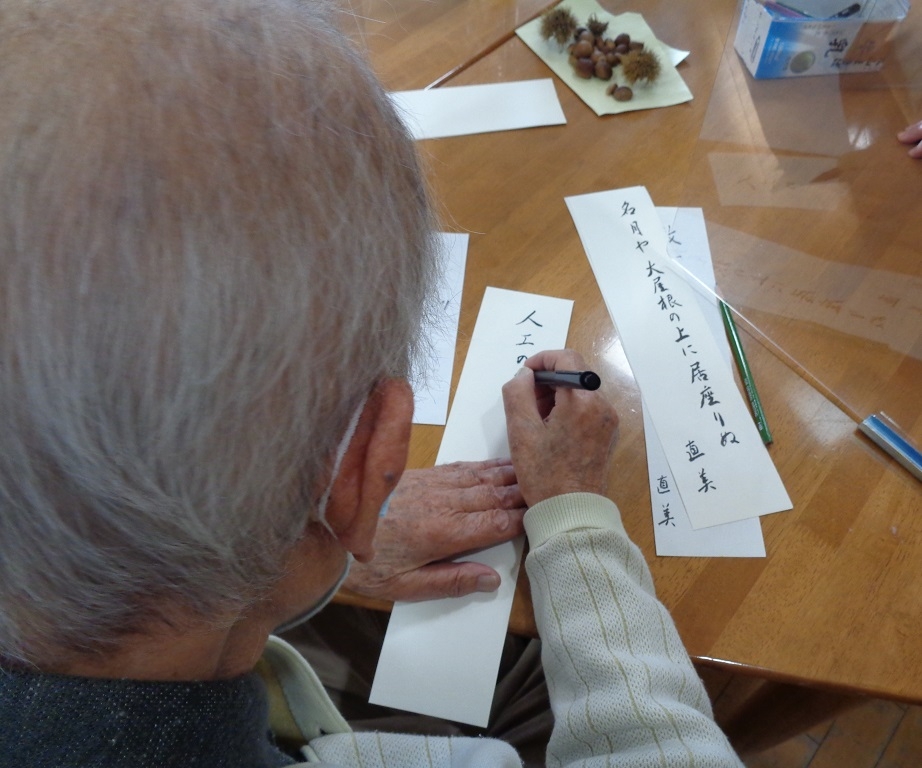 名月や大屋根の上に居座りぬ
直美
直美
人工の
乳